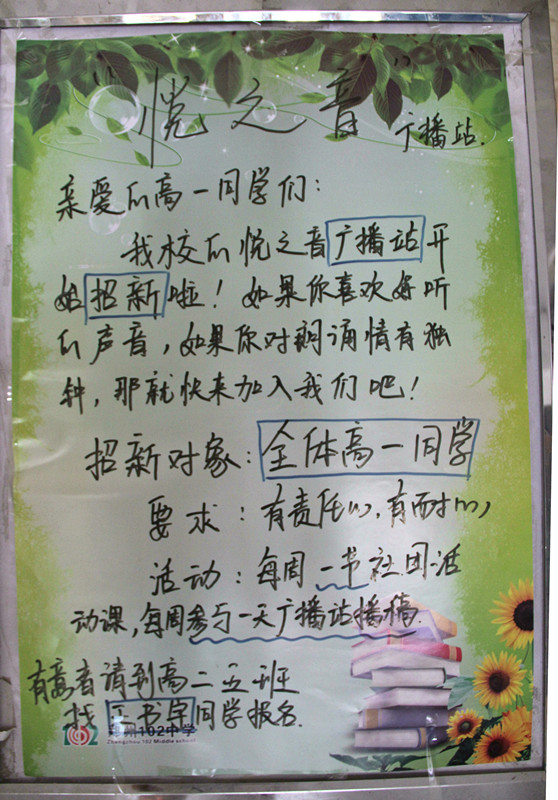 悦之音
广播站.
亲爱的高一同学们:
我校的悦之音广播站开
始招新啦!如果你喜欢好听
的声音,如果你对朗诵情有独
钟,那就快来加入我们吧!
招新对象:全体高一同学
要求:有责任心,有耐心,
活动:每周一节社团活
动课,每周参与一天广播站播稿.
有意者请到高二五班
找王书宇同学报名.
郑州102中学
Zhengzhou 102 Middle school